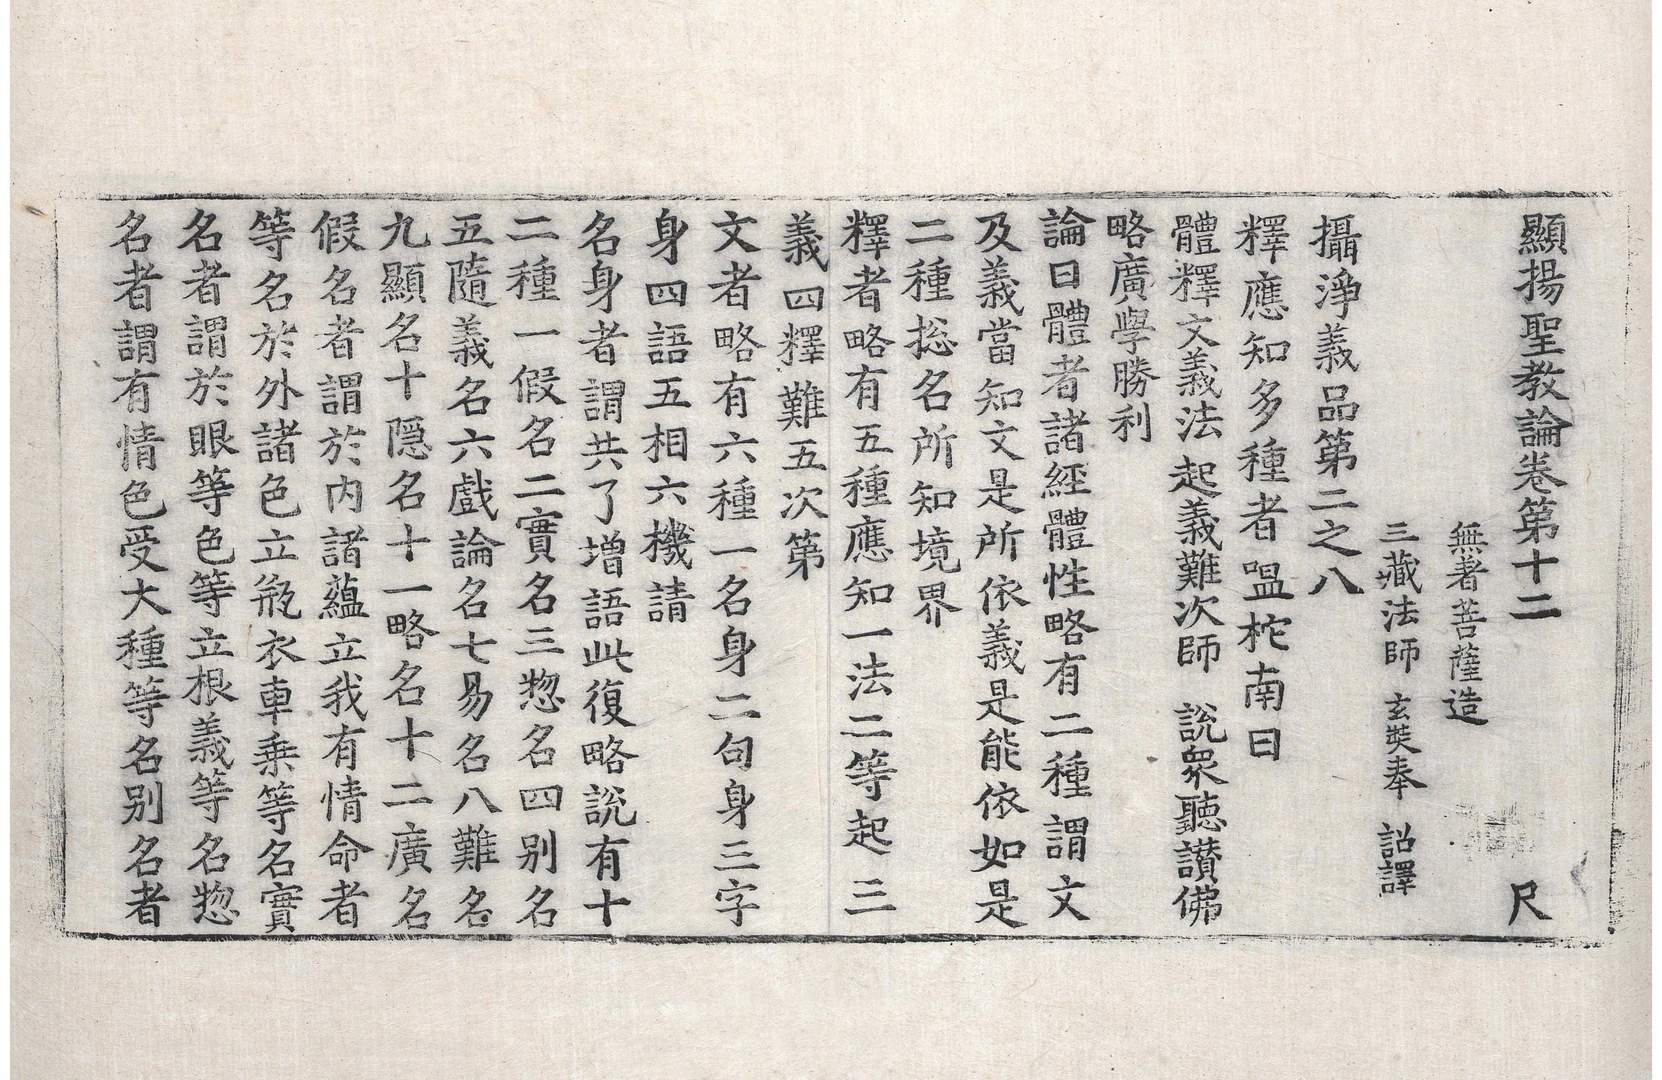 顯揚聖教論卷第十二 尺
無著菩薩造
三藏法師 玄奘奉 詔譯
攝淨義品第二之八
釋應知多種者嗢柁南曰
體釋文義法 起義難次師 說衆聽讃佛
略廣學勝利
論曰體者諸經體性略有二種謂文
及義當知文是所依義是能依如是
二種捴名所知境界
釋者略有五種應知一法二等起三
義四釋難五次第
文者略有六種一名身二句身三字
身四語五相六機請
名身者謂共了增語此復略說有十
二種一假名二實名三惣名四別名
五隨義名六戲論名七易名八難名
九顯名十隱名十一略名十二廣名
假名者謂於內諸蘊立我有情命者
等名於外諸色立瓶衣車乗等名實
名者謂於眼等色等立根義等名惣
名者謂有情色受大種等名別名者